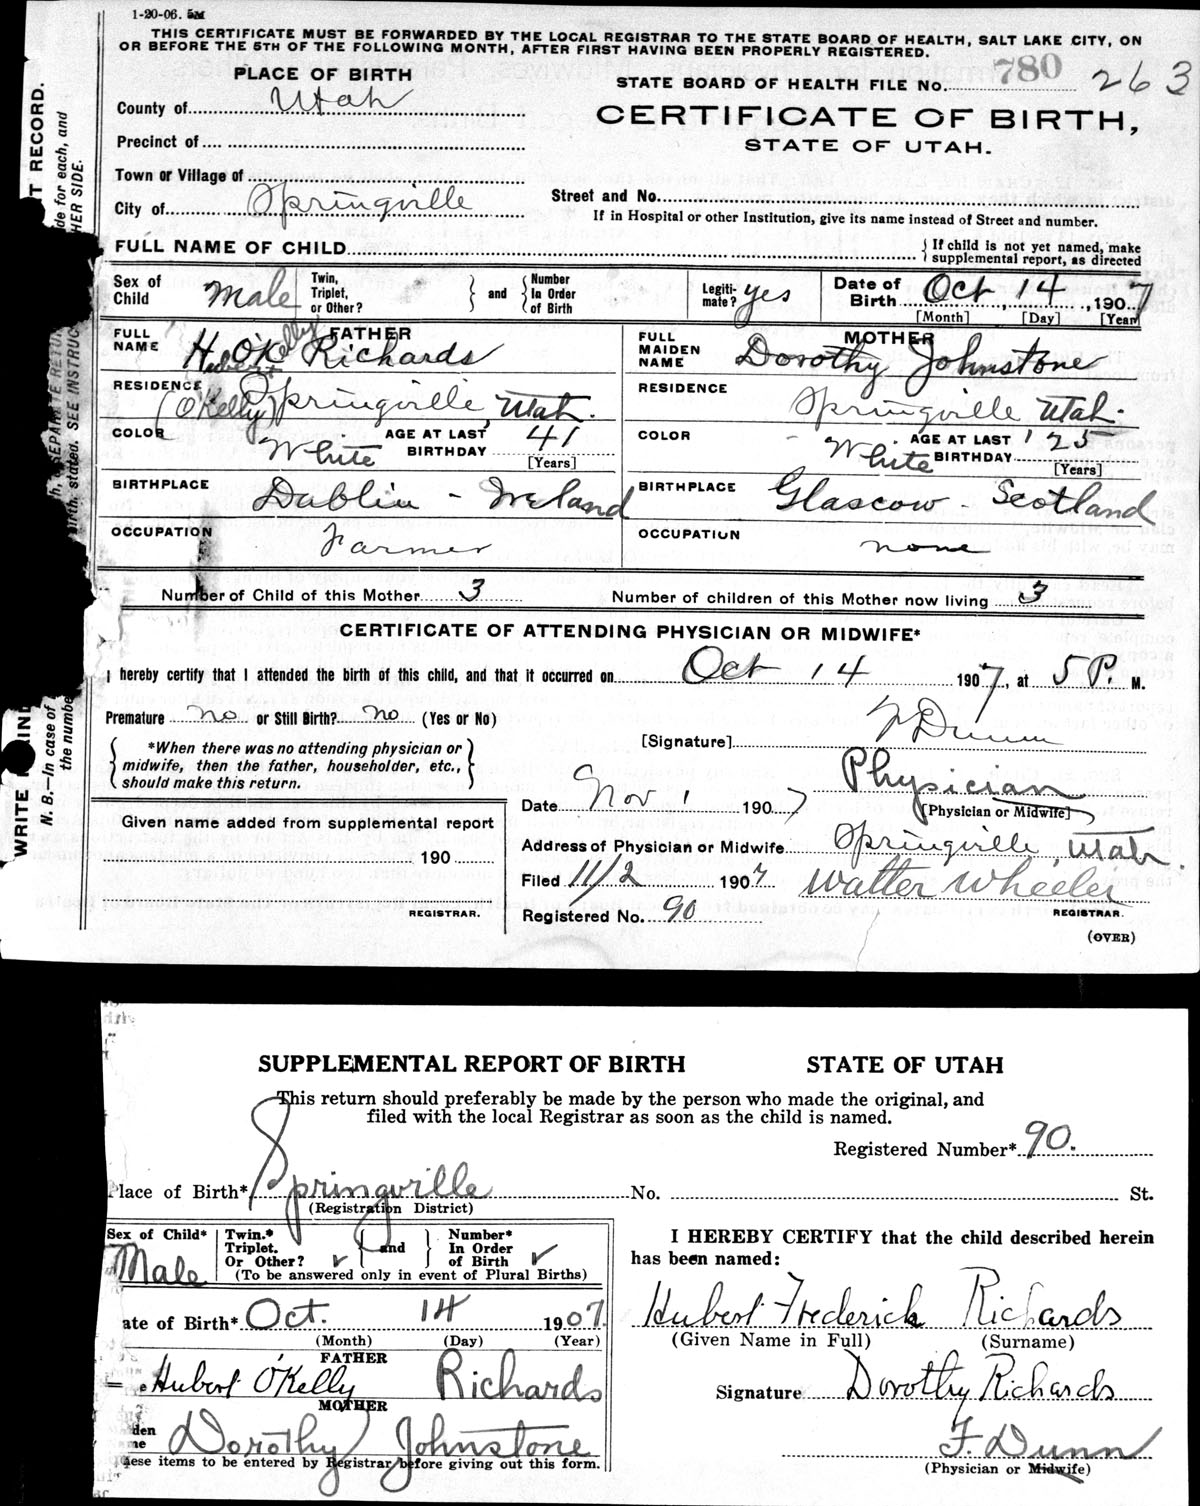 1-20-06. 5M
THIS CERTIFICATE MUST BE FORWARDED BY THE LOCAL REGISTRAR TO THE STATE BOARD OF HEALTH, SALT LAKE CITY, ON
OR BEFORE THE 5TH OF THE FOLLOWING MONTH, AFTER FIRST HAVING BEEN PROPERLY REGISTERED.
PLACE OF BIRTH
STATE BOARD OF HEALTH FILE No. 780 263
County of Utah
CERTIFICATE OF BIRTH,
Precinct of
STATE OF UTAH.
Town or Village of
City of Springville
Street and No.
If in Hospital or other Institution, give its name instead of Street and number.
FULL NAME OF CHILD
{ If child is not yet named, make
supplemental report, as directed
Sex of Child Male
Twin, Triplet, or Other? } and { Number In Order of Birth
Legiti-mate? yes
Date of Birth Oct 14, 1907
[Month] [Day] [Year]
FATHER
FULL NAME H. O'Kelly Richards
Hubert
RESIDENCE Springville Utah.
(O'Kelly)
COLOR White AGE AT LAST BIRTHDAY 41
[Years]
BIRTHPLACE Dublin - Ireland
OCCUPATION Farmer
MOTHER
FULL MAIDEN NAME Dorothy Johnstone
RESIDENCE Springville Utah.
COLOR White AGE AT LAST BIRTHDAY 25
[Years]
BIRTHPLACE Glascow - Scotland
OCCUPATION none
Number of Child of this Mother 3 Number of children of this Mother now living 3
CERTIFICATE OF ATTENDING PHYSICIAN OR MIDWIFE*
I hereby certify that I attended the birth of this child, and that it occurred on Oct 14 1907, at 5 P. M.
Premature no or Still Birth? no (Yes or No)
[Signature] F Dunn
{ *When there was no attending physician or
midwife, then the father, householder, etc.,
should make this return. }
Physician
Date Nov 1 1907
[Physician or Midwife]
Given name added from supplemental report
190
REGISTRAR.
Address of Physician or Midwife Springville, Utah.
Filed 11/2 1907 Walter Wheeler
Registered No. 90
REGISTRAR.
(OVER)
T RECORD.
de for each, and
HER SIDE.
SEPARATE RETU
stated. SEE INSTRUC
WRITE
N. B.—In case of
the numbe
SUPPLEMENTAL REPORT OF BIRTH STATE OF UTAH
This return should preferably be made by the person who made the original, and
filed with the local Registrar as soon as the child is named.
Registered Number* 90.
lace of Birth* Springville No. St.
(Registration District)
Sex of Child* Male
Twin.* Triplet. Or Other? ✓ { and } Number* In Order of Birth ✓
(To be answered only in event of Plural Births)
ate of Birth* Oct. 14 1907.
(Month) (Day) (Year)
FATHER
Hubert O'Kelly Richards
MOTHER
den
me Dorothy Johnstone
ese items to be entered by Registrar before giving out this form.
I HEREBY CERTIFY that the child described herein
has been named:
Hubert Frederick Richards
(Given Name in Full) (Surname)
Signature Dorothy Richards
F. Dunn
(Physician or Midwife)